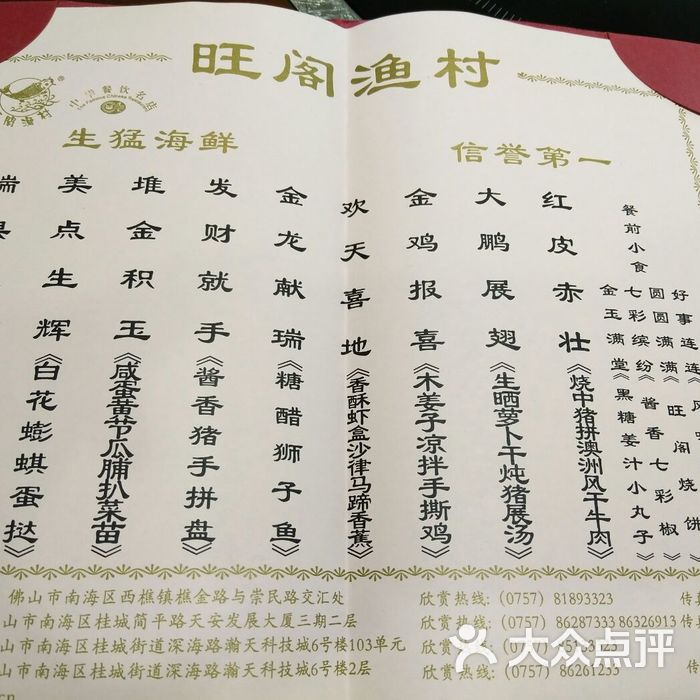 旺阁渔村
中华餐饮名店
生猛海鲜
信誉第一
餐前小食
好事连连
圆圆满满《旺阁烧饼
七彩缤纷《酱香七彩椒
金玉满堂《黑糖姜汁小丸子
红皮赤壮《烧中猪拼澳洲风干牛肉》
大鹏展翅《生晒萝卜干炖猪展汤》
金鸡报喜《木姜子凉拌手撕鸡》
欢天喜地《香酥虾盒沙律马蹄香蕉》
金龙献瑞《糖醋狮子鱼》
发财就手《酱香猪手拼盘》
堆金积玉《咸蛋黄节瓜脯扒菜苗》
美点生辉《白花蟛蜞蛋挞》
佛山市南海区西樵镇樵金路与崇民路交汇处
欣赏热线:(0757) 81893323
传真
山市南海区桂城简平路天安发展大厦三期二层
欣赏热线:(0757) 86287333 86326913
传真
山市南海区桂城街道深海路瀚天科技城6号楼103单元
欣赏热线:(0757)
山市南海区桂城街道深海路瀚天科技城6号楼2层
欣赏热线:(0757) 86261233
传
大众点评